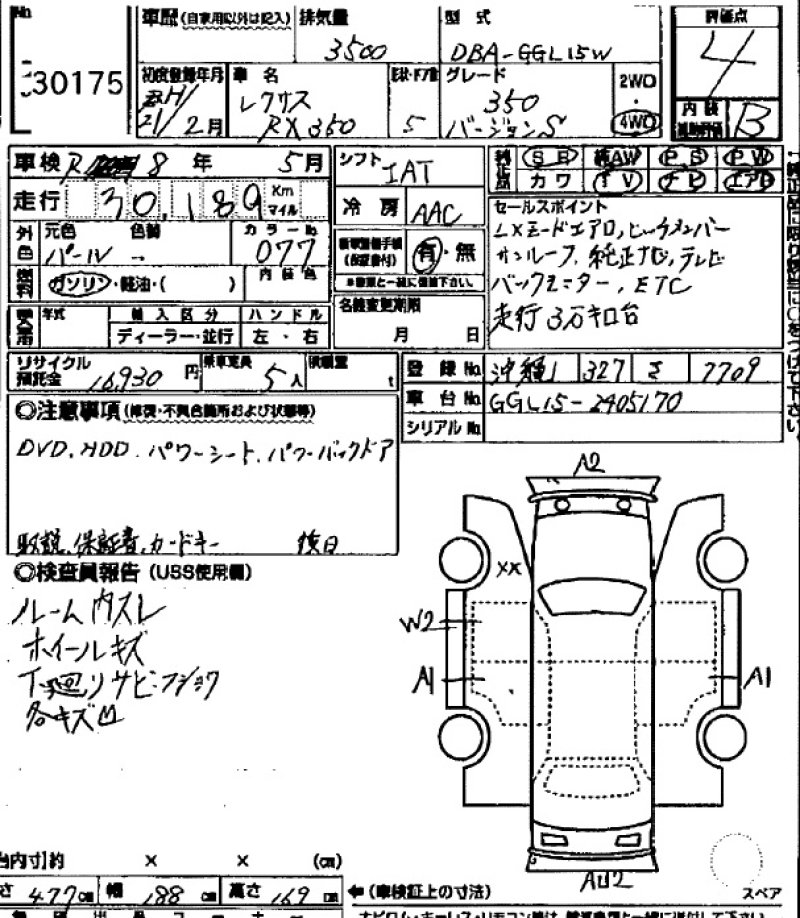 No
30175
車歴(自家用以外は記入) 排気量 3500 型式 DBA-GGL15W
評価点 4
内装 B
初度登録年月 21年 2月
車名 レクサス RX350
5
グレード 350 バージョンS
2WD ・ 4WD
車検 R 8年 5月
シフト IAT
SR AW PS PW
カワ TV ナビ エアB
走行 30,189 Km マイル
冷房 AAC
セールスポイント
LXモードエアロ, ビックメンバー
サンルーフ, 純正ナビ, テレビ
バックモニター, ETC
走行3万キロ台
外色 元色 パール 色替 カラーNo 077
有・無
燃料 ガソリン・軽油・( ) 内装色
名義変更期限
月 日
年式 輸入区分 ハンドル
ディーラー・並行 左・右
リサイクル預託金 16,930円
乗車定員 5人
積載量 t
登録No 沖縄 327 さ 7709
車台No GGL15-2405170
シリアルNo
◎注意事項(修復・不具合箇所および状態等)
DVD, HDD, パワーシート, パワーバックドア
取説, 保証書, カードキー 後日
◎検査員報告(USS使用欄)
ルーム内スレ
ホイールキズ
下廻りサビ・フショク
各キズ凹
A2
XX
W2
A1
A1
AU2
スペア
台内寸]約 × × (cm)
さ 477cm 幅 188cm 高さ 169cm
←(車検証上の寸法)